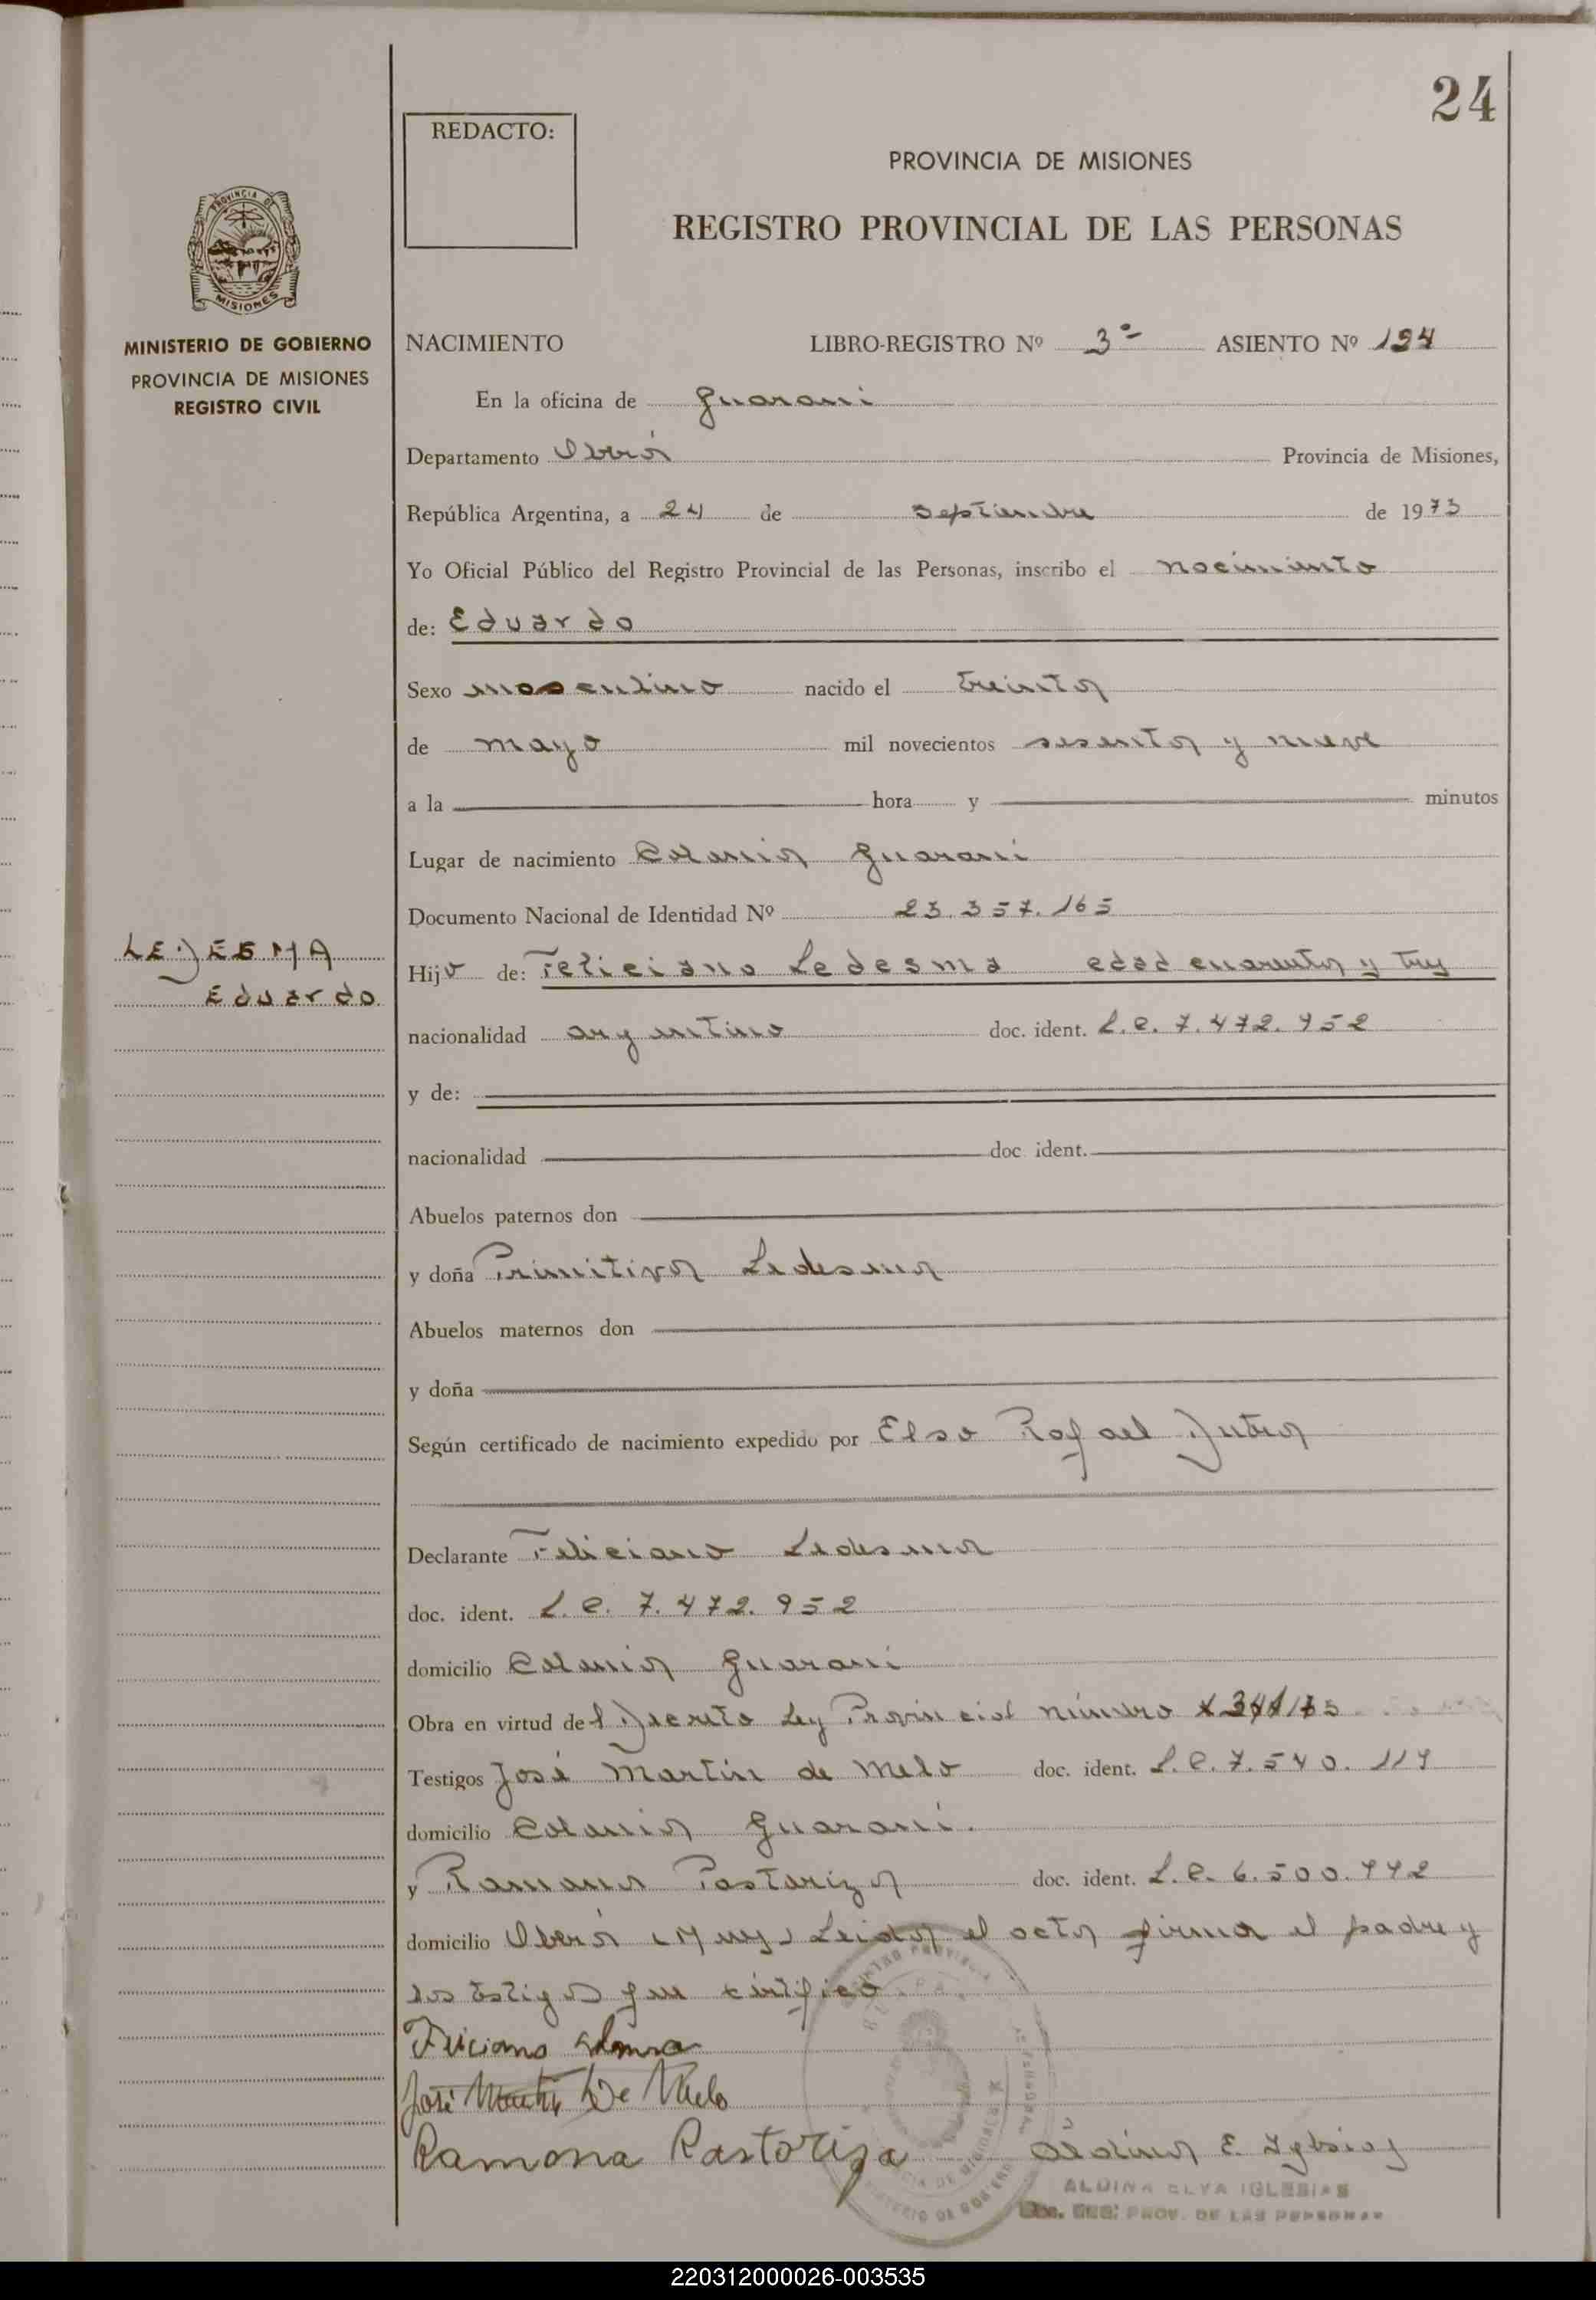 24
REDACTO:
PROVINCIA DE MISIONES
REGISTRO PROVINCIAL DE LAS PERSONAS
PROVINCIA DE
MISIONES
MINISTERIO DE GOBIERNO
PROVINCIA DE MISIONES
REGISTRO CIVIL
NACIMIENTO LIBRO-REGISTRO Nº 3º ASIENTO Nº 194
En la oficina de Guarani
Departamento Oberá Provincia de Misiones,
República Argentina, a 24 de septiembre de 1973
Yo Oficial Público del Registro Provincial de las Personas, inscribo el nacimiento
de: Eduardo
Sexo masculino nacido el treinta
de mayo mil novecientos sesenta y nueve
a la hora y minutos
Lugar de nacimiento Colonia Guarani
Documento Nacional de Identidad Nº 23.357.165
LEDESMA
Eduardo
Hijo de: Feliciano Ledesma edad cuarenta y tres
nacionalidad argentino doc. ident. L.E. 7.472.952
y de:
nacionalidad doc. ident.
Abuelos paternos don
y doña Primitiva Ledesma
Abuelos maternos don
y doña
Según certificado de nacimiento expedido por Elso Rafael
Declarante Feliciano Ledesma
doc. ident. L.E. 7.472.952
domicilio Colonia Guarani
Obra en virtud del Decreto Ley Provincial número
Testigos José Martín de Melo doc. ident. L.E. 7.540.119
domicilio Colonia Guarani.
y Ramona Pastoriza doc. ident. L.C. 6.500.442
domicilio Oberá Leida el acta firma el padre y
los testigos que certifico
Feliciano Ledesma
José Martin De Melo
Ramona Pastoriza Aldina E. Iglesias
ALDINA ELVA IGLESIAS
REG. PROV. DE LAS PERSONAS
220312000026-003535